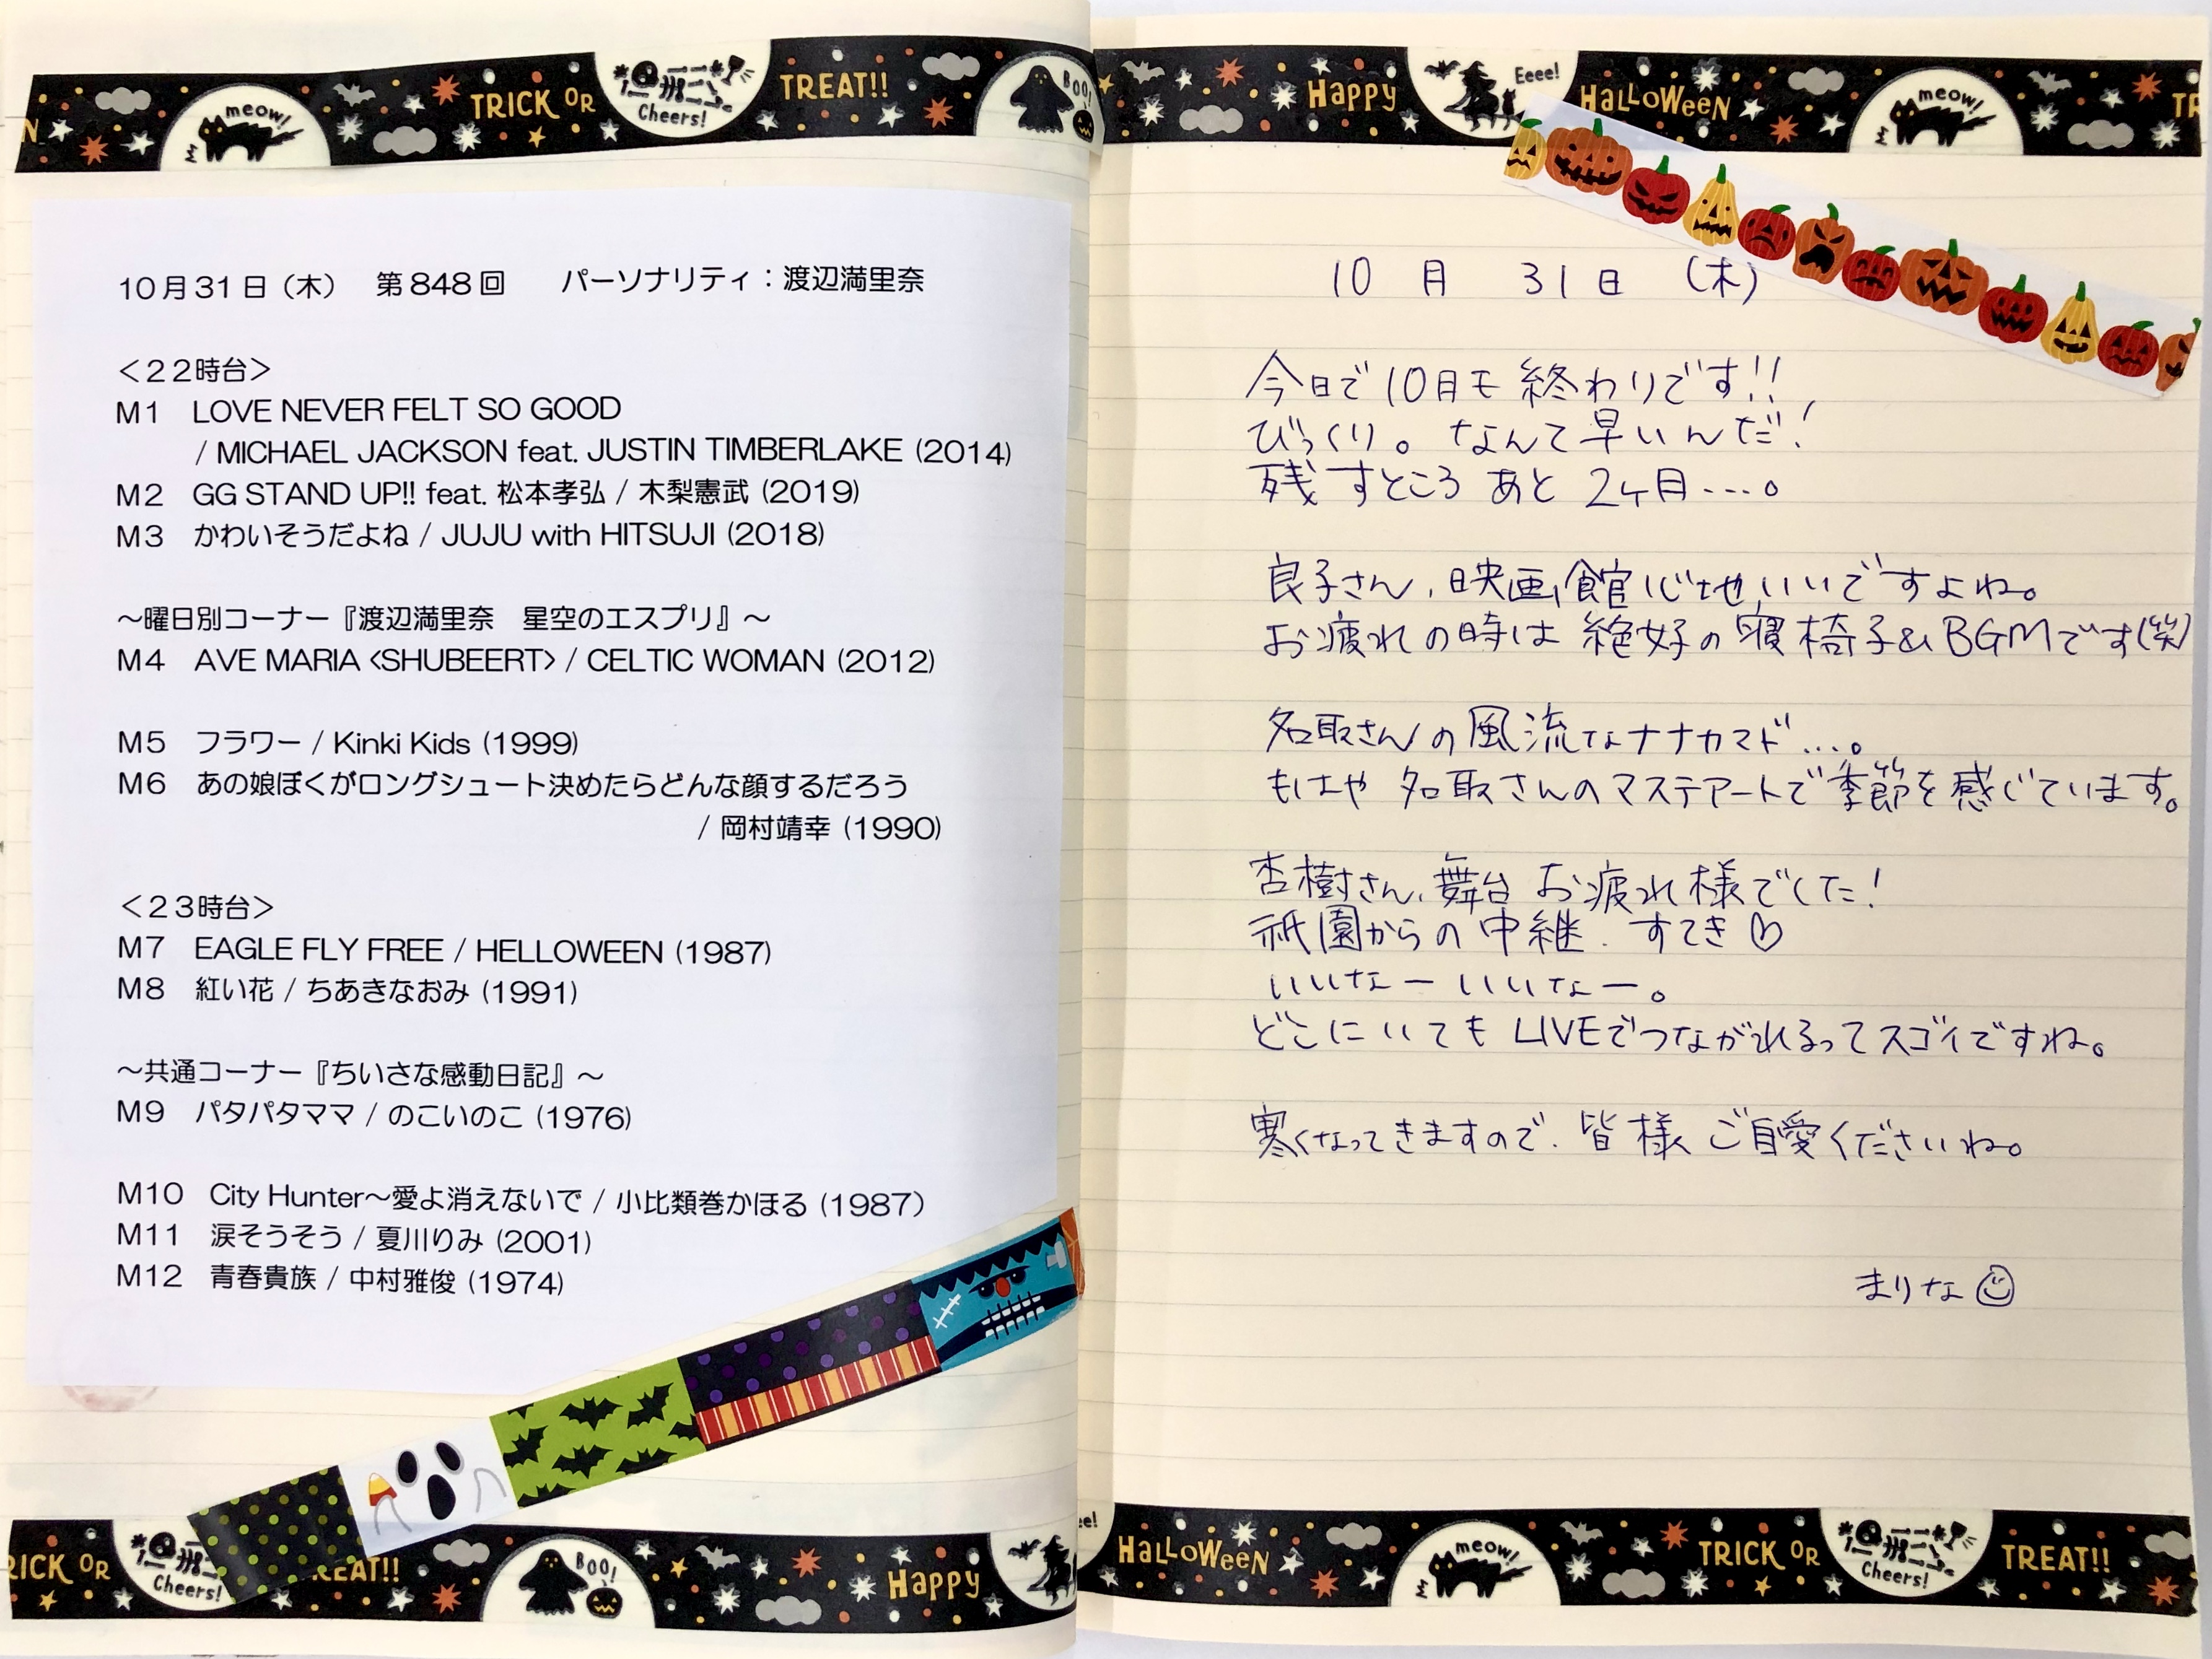 N meow! TRICK OR Cheers! TREAT!! BOO!
10月31日（木）　第848回　　パーソナリティ：渡辺満里奈
＜２２時台＞
M1　LOVE NEVER FELT SO GOOD
/ MICHAEL JACKSON feat. JUSTIN TIMBERLAKE (2014)
M2　GG STAND UP!! feat. 松本孝弘 / 木梨憲武 (2019)
M3　かわいそうだよね / JUJU with HITSUJI (2018)
～曜日別コーナー『渡辺満里奈　星空のエスプリ』～
M4　AVE MARIA <SHUBEERT> / CELTIC WOMAN (2012)
M5　フラワー / Kinki Kids (1999)
M6　あの娘ぼくがロングシュート決めたらどんな顔するだろう
/ 岡村靖幸 (1990)
＜２３時台＞
M7　EAGLE FLY FREE / HELLOWEEN (1987)
M8　紅い花 / ちあきなおみ (1991)
～共通コーナー『ちいさな感動日記』～
M9　パタパタママ / のこいのこ (1976)
M10　City Hunter～愛よ消えないで / 小比類巻かほる (1987)
M11　涙そうそう / 夏川りみ (2001)
M12　青春貴族 / 中村雅俊 (1974)
RICK OR Cheers! REAT!! BOO! Happy
Happy Eeee! HALLOWEEN meow! TR
10月 31日 (木)
今日で10月モ終わりです!!
びっくり。なんて早いんだ!
残すところ あと 2ヶ月....。
良子さん、映画館心地いいですよね。
お疲れの時は 絶好の寝椅子&BGMです(笑)
名取さんの風流なナナカマド...。
もはや 名取さんのマステアートで季節を感じています。
杏樹さん、舞台お疲れ様でした!
祇園からの中継、すてき♡
いいなー いいなー。
どこにいても LIVEでつながれるってスゴイですね。
寒くなってきますので、皆様ご自愛くださいね。
まりな☺
ee! HALLOWEEN meow! TRICK OR Cheers! TREAT!!